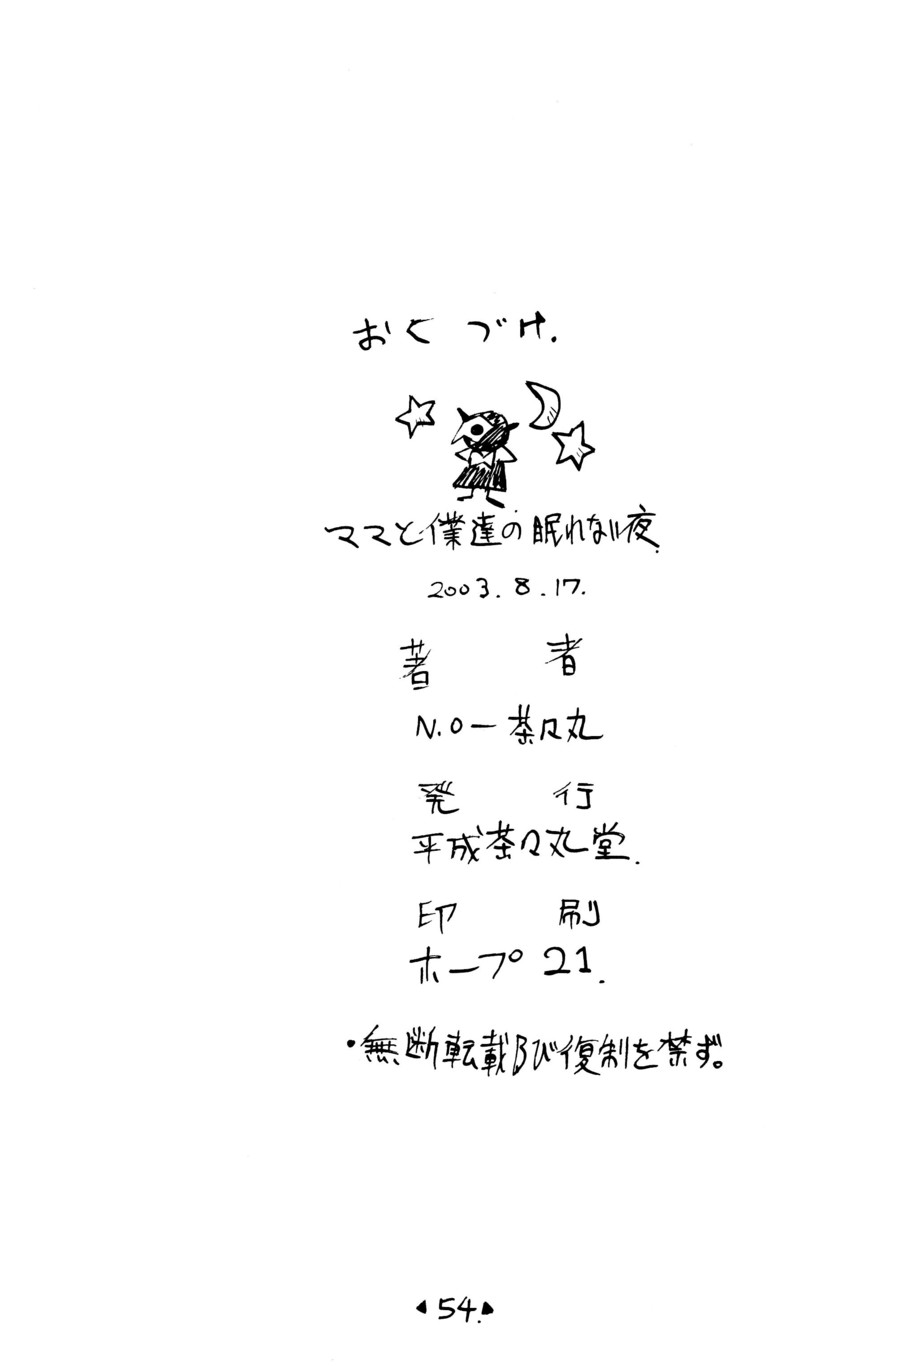 おくづけ.
ママと僕達の眠れない夜.
2003.8.17.
著　者
N.O－茶々丸
発　行
平成茶々丸堂.
印　刷
ホープ21.
・無断転載及び復制を禁ず。
54.